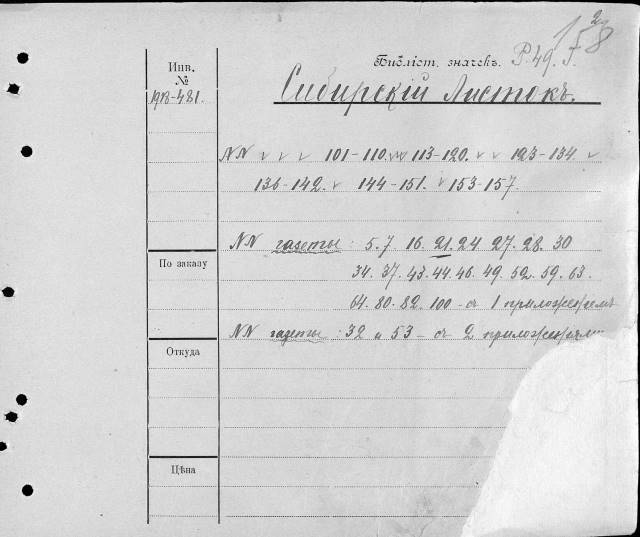 2
158
Инв. №
Библіот. значекъ. P.49.
1918-481.
Сибирскій Листокъ.
NN v v v 101-110. v v 113-120. v v 123-134. v
136-142. v 144-151. v 153-157.
NN газеты: 5.7 16. 21. 24. 27. 28. 30
34. 37. 43. 44. 46. 49. 52. 59. 63.
По заказу
64. 80. 82. 100 - съ 1 приложеніемъ
NN газеты: 32 и 53 - съ 2 приложеніями
Откуда
Цѣна